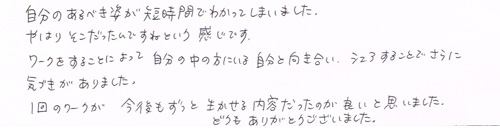 自分のあるべき姿が短時間でわかってしまいました.
やはり そこだったんですねという 感じです.
ワークをすることによって 自分の中の方にいる 自分と向き合い. シェアすることでさらに
気づきがありました.
1回のワークが 今後もずっと 生かせる内容だったのが良いと思いました.
どうも ありがとうございました.